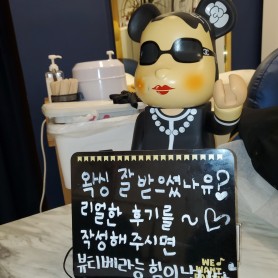 왁싱 잘 받으셨나유?
리얼한 후기를 ~ ♡
작성해 주시면
뷰티베라는 힘이 나
WE
WANT